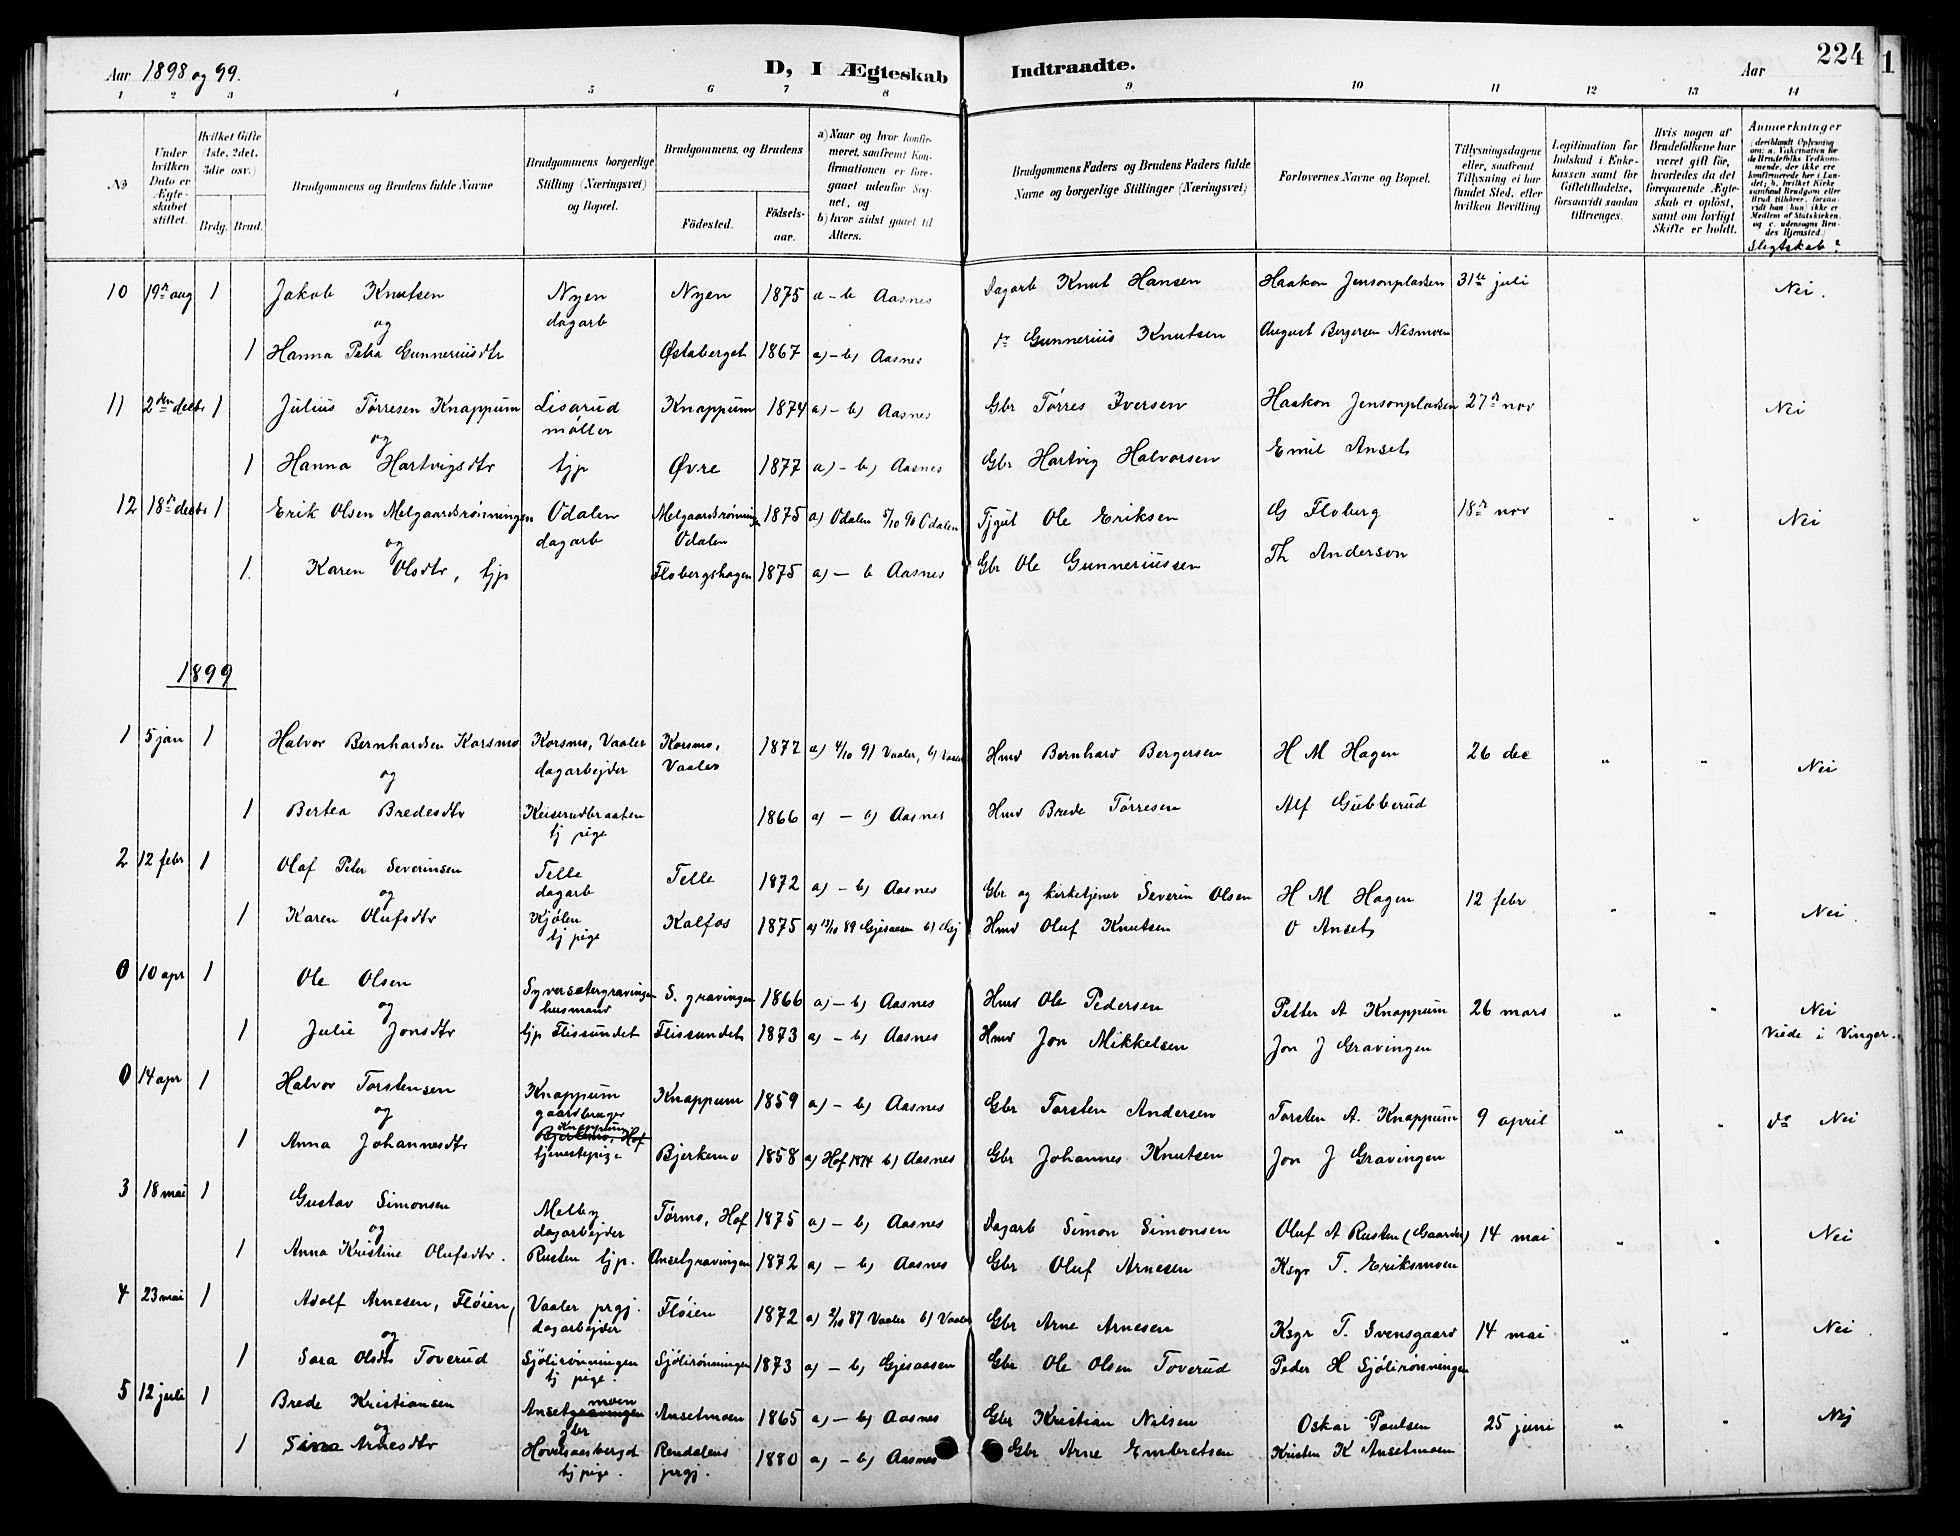 224
1
Aar 1898 og 99.
D, I Ægteskab Indtraadte.
Aar
1 2 3 4 5 6 7 8 9 10 11 12 13 14
№
Under hvilken Dato er Ægteskabet stiftet.
Hvilket Gifte (1ste, 2det, 3die osv.)
Brdg. Brud.
Brudgommens og Brudens fulde Navne
Brudgommens borgerlige Stilling (Næringsvei) og Bopæl.
Brudgommens, og Brudens
Födested.
Födselsaar.
a) Naar og hvor konfirmeret, saafremt Konfirmationen er foregaaet udenfor Sognet, og
b) hvor sidst gaaet til Alters.
Brudgommens Faders og Brudens Faders fulde Navne og borgerlige Stillinger (Næringsvei)
Forlovernes Navne og Bopæl.
Tillysningsdagene eller, saafremt Tillysning ei har fundet Sted, efter hvilken Bevilling
Legitimation for Indskud i Enkekassen samt for Giftetilladelse, forsaavidt saadan tiltrænges.
Hvis nogen af Brudefolkene har været gift för, hvorledes da det foregaaende Ægteskab er oplöst, samt om lovligt Skifte er holdt.
Anmærkninger (deriblandt Oplysning om: a. Vakcinationen for de Brudefolks Vedkommende, der ikke ere konfirmerede her i Landet; b. hvilket Kirkesamfund Brudgom eller Brud tilhörer, forsaavidt han (hun) ikke er Medlem af Statskirken, og c. udensogns Brudes Hjemsted.)
Slegtskab?
10 19de aug 1 Jakob Knutsen Nyen dagarb Nyen 1875 a-b Aasnes Dagarb Knut Hansen Haakon Jensonpladsen 31te juli Nei.
og
1 Hanna Petra Gunneriusdtr Østaberget 1867 a)-b) Aasnes do Gunnerius Knutsen August Bergersen Nesmoen
11 2den decbr 1 Julius Tørresen Knappum Lisarud møller Knappum 1874 a)-b) Aasnes Gbr Tørres Iversen Haakon Jensonpladsen 27de nov Nei
og
1 Hanna Hartvigsdtr tjp Øvre 1877 a)-b) Aasnes Gbr Hartvig Halvorsen Emil Anset
12 18de decbr 1 Erik Olsen Melgaardsrønningen Odalen dagarb Melgaardsrønning Odalen 1875 a) Odalen 5/10 90 Odalen Tjgut Ole Eriksen G Floberg 18de nov " " Nei
og
1. Karen Olsdtr, tjp Flobergshagen 1875 a) - b Aasnes Gbr Ole Gunneriussen Th Anderson
1899
1 5 jan 1 Halvor Bernhardsen Korsmo Korsmo, Vaaler dagarbejder Korsmo, Vaaler 1872 a) 4/10 91 Vaaler, b) Vaaler Hmd Bernhard Bergersen H M Hagen 26 dec " " Nei
og
1 Bertea Bredesdtr Keiserudbraaten tj pige 1866 a) - b) Aasnes Hmd Brede Tørresen Alf Gubberud
2 12 febr 1 Olaf Peter Severinsen Telle dagarb Telle 1872 a) - b) Aasnes Gbr og kirketjener Severin Olsen H M Hagen 12 febr " " Nei.
og
1 Karen Olufsdtr Kjølen tj pige Kalfos 1875 a) 13/10 89 Gjesaasen b) Gj Hmd Oluf Knutsen O Anset
0 10 apr 1 Ole Olsen Syversætergravingen husmand S. gravingen 1866 a) - b) Aasnes Hmd Ole Pedersen Petter A Knappum 26 mars " " Nei
og
1 Julie Jonsdtr tjp Flissundet Flissundet 1873 a) - b) Aasnes Hmd Jon Mikkelsen Jon J Gravingen Viede i Vinger.
0 14 apr 1 Halvor Torstensen Knappum gaardbruger Knappum 1859 a) - b) Aasnes Gbr Torsten Andersen Torsten A. Knappum 9 april " " do Nei
og
1 Anna Johannesdtr Knappum Bjerkemo, Hof tjenestepige Bjerkemo 1858 a) Hof 1874 b) Aasnes Gbr Johannes Knutsen Jon J Gravingen
3 18 mai 1 Gustav Simonsen Melby dagarbejder Tørmo, Hof 1875 a) - b) Aasnes Dagarb Simon Simonsen Oluf A Rusten (Gaarder) 14 mai " " Nei
og
1 Anna Kristine Olufsdtr. Rusten tjp. Ansetgravingen 1872 a) - b) Aasnes Gbr Oluf Arnesen Ksgr T. Eriksmoen
4 23 mai 1 Adolf Arnesen, Fløien, Vaaler prgj. dagarbejder Fløien 1872 a) 2/10 87 Vaaler b) Vaaler Gbr Arne Arnesen Ksgr T. Svensgaard 14 mai " " Nei
og
1 Sara Olsdtr Toverud Sjølirønningen tj pige. Sjølirønningen 1873 a) - b) Gjesaasen Gbr Ole Olsen Toverud Peder H Sjølirønningen
5 12 juli 1 Brede Kristiansen Ansetgravingen moen gbr Ansetmoen 1865 a) - b) Aasnes Gbr Kristian Nilsen Oskar Paulsen 25 juni " " Nej
og
1 Sina Arnesdtr Hovelsaasberget tj pige. Rendalens prgj. 1880 a) - b) Aasnes Gbr Arne Embretsen Kristen K Ansetmoen